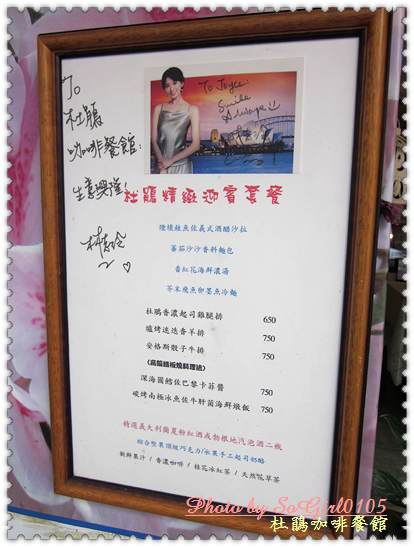 To
杜鵑
咖啡餐館:
生意興隆!
To Joyce:
Smile
Always
杜鵑精緻迎賓套餐
煙燻鮭魚佐義式酒醋沙拉
蕃茄沙沙香料麵包
番紅花海鮮濃湯
芥末飛魚卵墨魚冷麵
杜鵑香濃起司雞腿排 650
爐烤迷迭香羊排 750
安格斯骰子牛排 750
(高腳鐵板燒料理法)
深海圓鱈佐巴黎卡菲醬 750
碳烤南極冰魚佐牛肝菌海鮮燉飯 750
精選義大利蘭夏粉紅酒或勃根地汽泡酒二瓶
綜合堅果頂級巧克力/水果手工起司奶酪
新鮮果汁 / 香濃咖啡 / 桂花冰紅茶 / 天然花草茶
Photo by SoGirl0105
杜鵑咖啡餐館